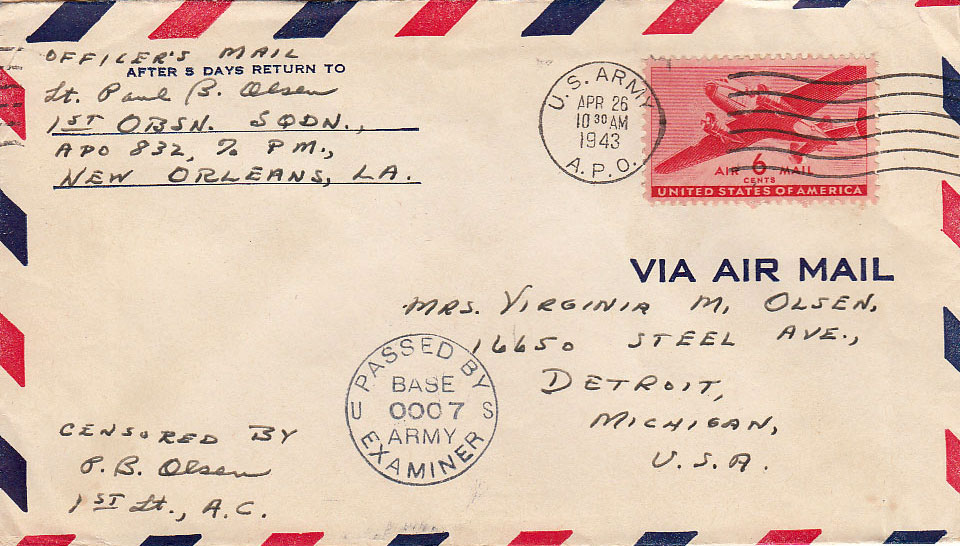 OFFICER'S MAIL
AFTER 5 DAYS RETURN TO
Lt. Paul B. Olsen
1ST OBSN. SQDN.,
APO 832, % P M.,
NEW ORLEANS, LA.
U.S. ARMY
APR 26
10 30 AM
1943
A.P.O.
AIR 6 MAIL
CENTS
UNITED STATES OF AMERICA
VIA AIR MAIL
MRS. VIRGINIA M. OLSEN,
16650 STEEL AVE.,
DETROIT,
MICHIGAN,
U.S.A.
PASSED BY
BASE
U 0007 S
ARMY
EXAMINER
CENSORED BY
P. B. Olsen
1ST Lt., A.C.